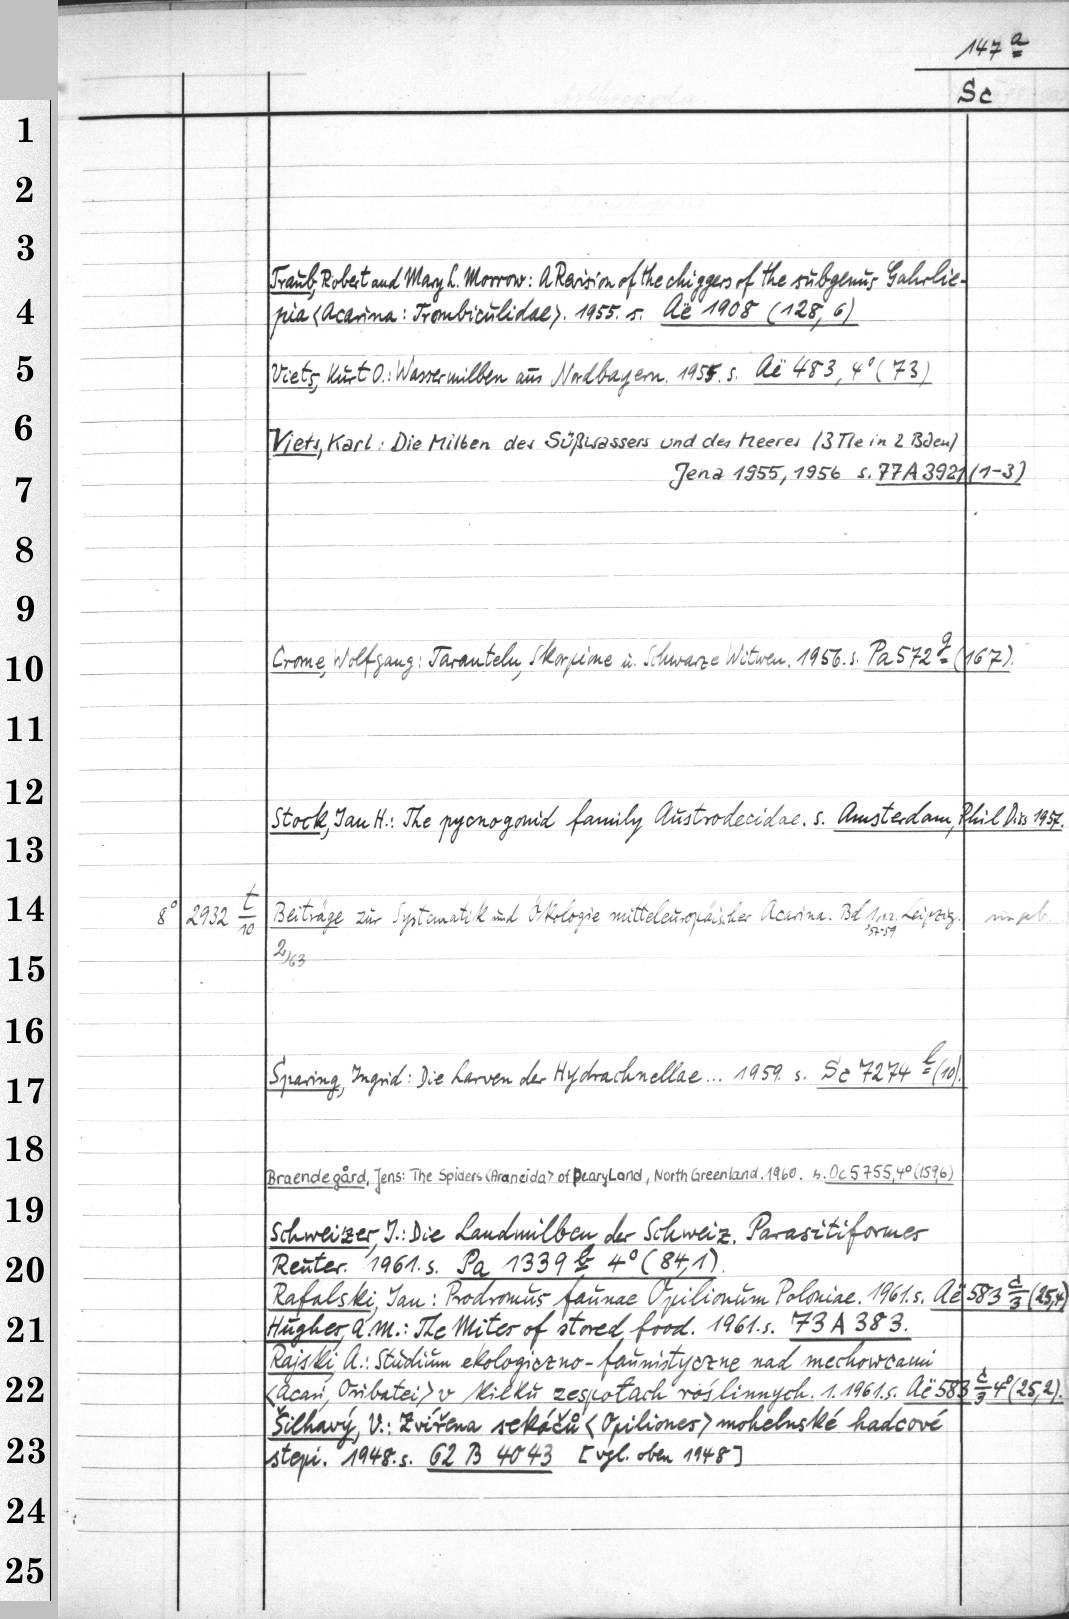 147 a
Sc
1
2
3
Traub, Robert and Mary L. Morrow: A Revision of the chiggers of the subgenus Gahrlie-
4
pia <Acarina: Trombiculidae>. 1955. s. Aë 1908 (128, 6)
5
Viets, Kurt O.: Wassermilben aus Nordbayern. 1955. s. Aë 483, 4° (73)
6
Viets, Karl: Die Milben des Süßwassers und des Meeres (3 Tle in 2 Bden)
7
Jena 1955, 1956 s. 77 A 3921 (1-3)
8
9
10
Crome, Wolfgang: Taranteln, Skorpione u. Schwarze Witwen. 1956. s. Pa 572 g (167).
11
12
Stock, Jan H.: The pycnogonid family Austrodecidae. s. Amsterdam, Phil Diss 1957.
13
14
8° 2932 t/10 Beiträge zur Systematik und Ökologie mitteleuropäischer Acarina. Bd 1,1.2. Leipzig.
57-59
2,63
15
16
Sparing, Ingrid: Die Larven der Hydrachnellae... 1959. s. Sc 7274 l (10).
17
18
Braendegård, Jens: The Spiders <Araneida> of Peary Land, North Greenland. 1960. s. Oc 5755, 4° (159,6)
19
Schweizer, J.: Die Landmilben der Schweiz. Parasitiformes
20
Reuter. 1961. s. Pa 1339 b 4° (84,1).
Rafalski, Jan: Prodromus faunae Opilionum Poloniae. 1961. s. Aë 583 d/3 (25,4)
21
Hughes, A. M.: The Mites of stored food. 1961. s. 73 A 383.
Rajski, A.: Studium ekologiczno-faunistyczne nad mechowcami
22
<Acari, Oribatei> w kilku zespołach roślinnych. 1. 1961. s. Aë 583 d/3 4° (25,2).
Šilhavý, V.: Zvířena sekáčů <Opiliones> mohelnské hadcové
23
stepi. 1948. s. 62 B 4043 [vgl. oben 1948]
24
25